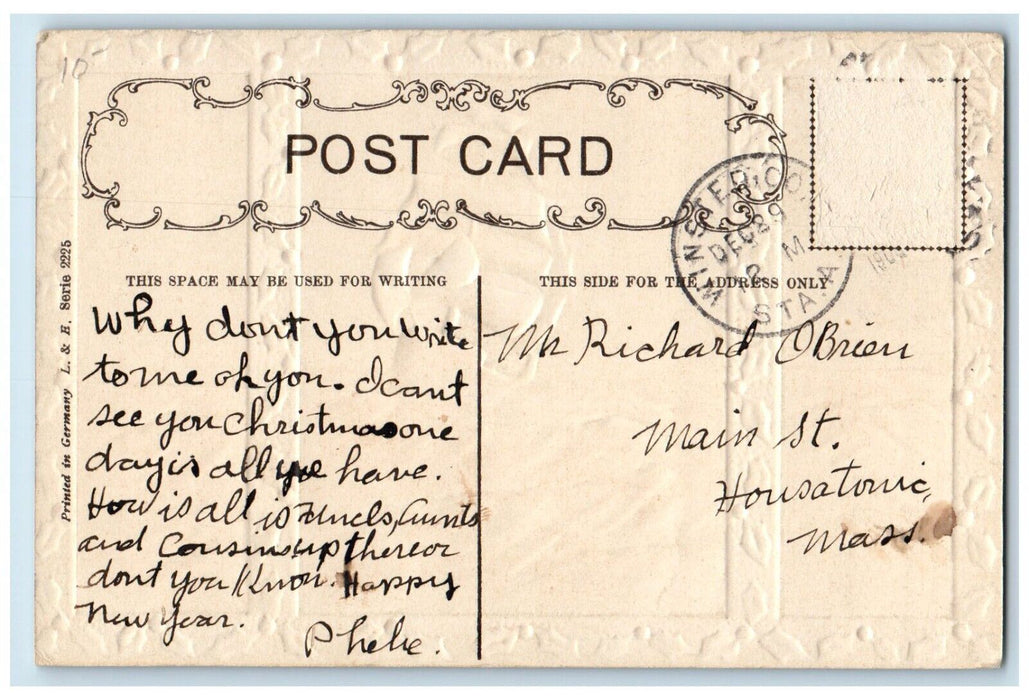 10
POST CARD
WINSTED, CO
DEC 29
M
STA. A
THIS SPACE MAY BE USED FOR WRITING
THIS SIDE FOR THE ADDRESS ONLY
Printed in Germany L. & E. Serie 2225
Why dont you write
to me oh you. I cant
see you Christmas one
day is all have.
How is all is Uncls, Aunts
and Cousins up there or
dont you Know. Happy
New Year.
Phebe.
Mr Richard OBrien
Main St.
Housatonic,
Mass.